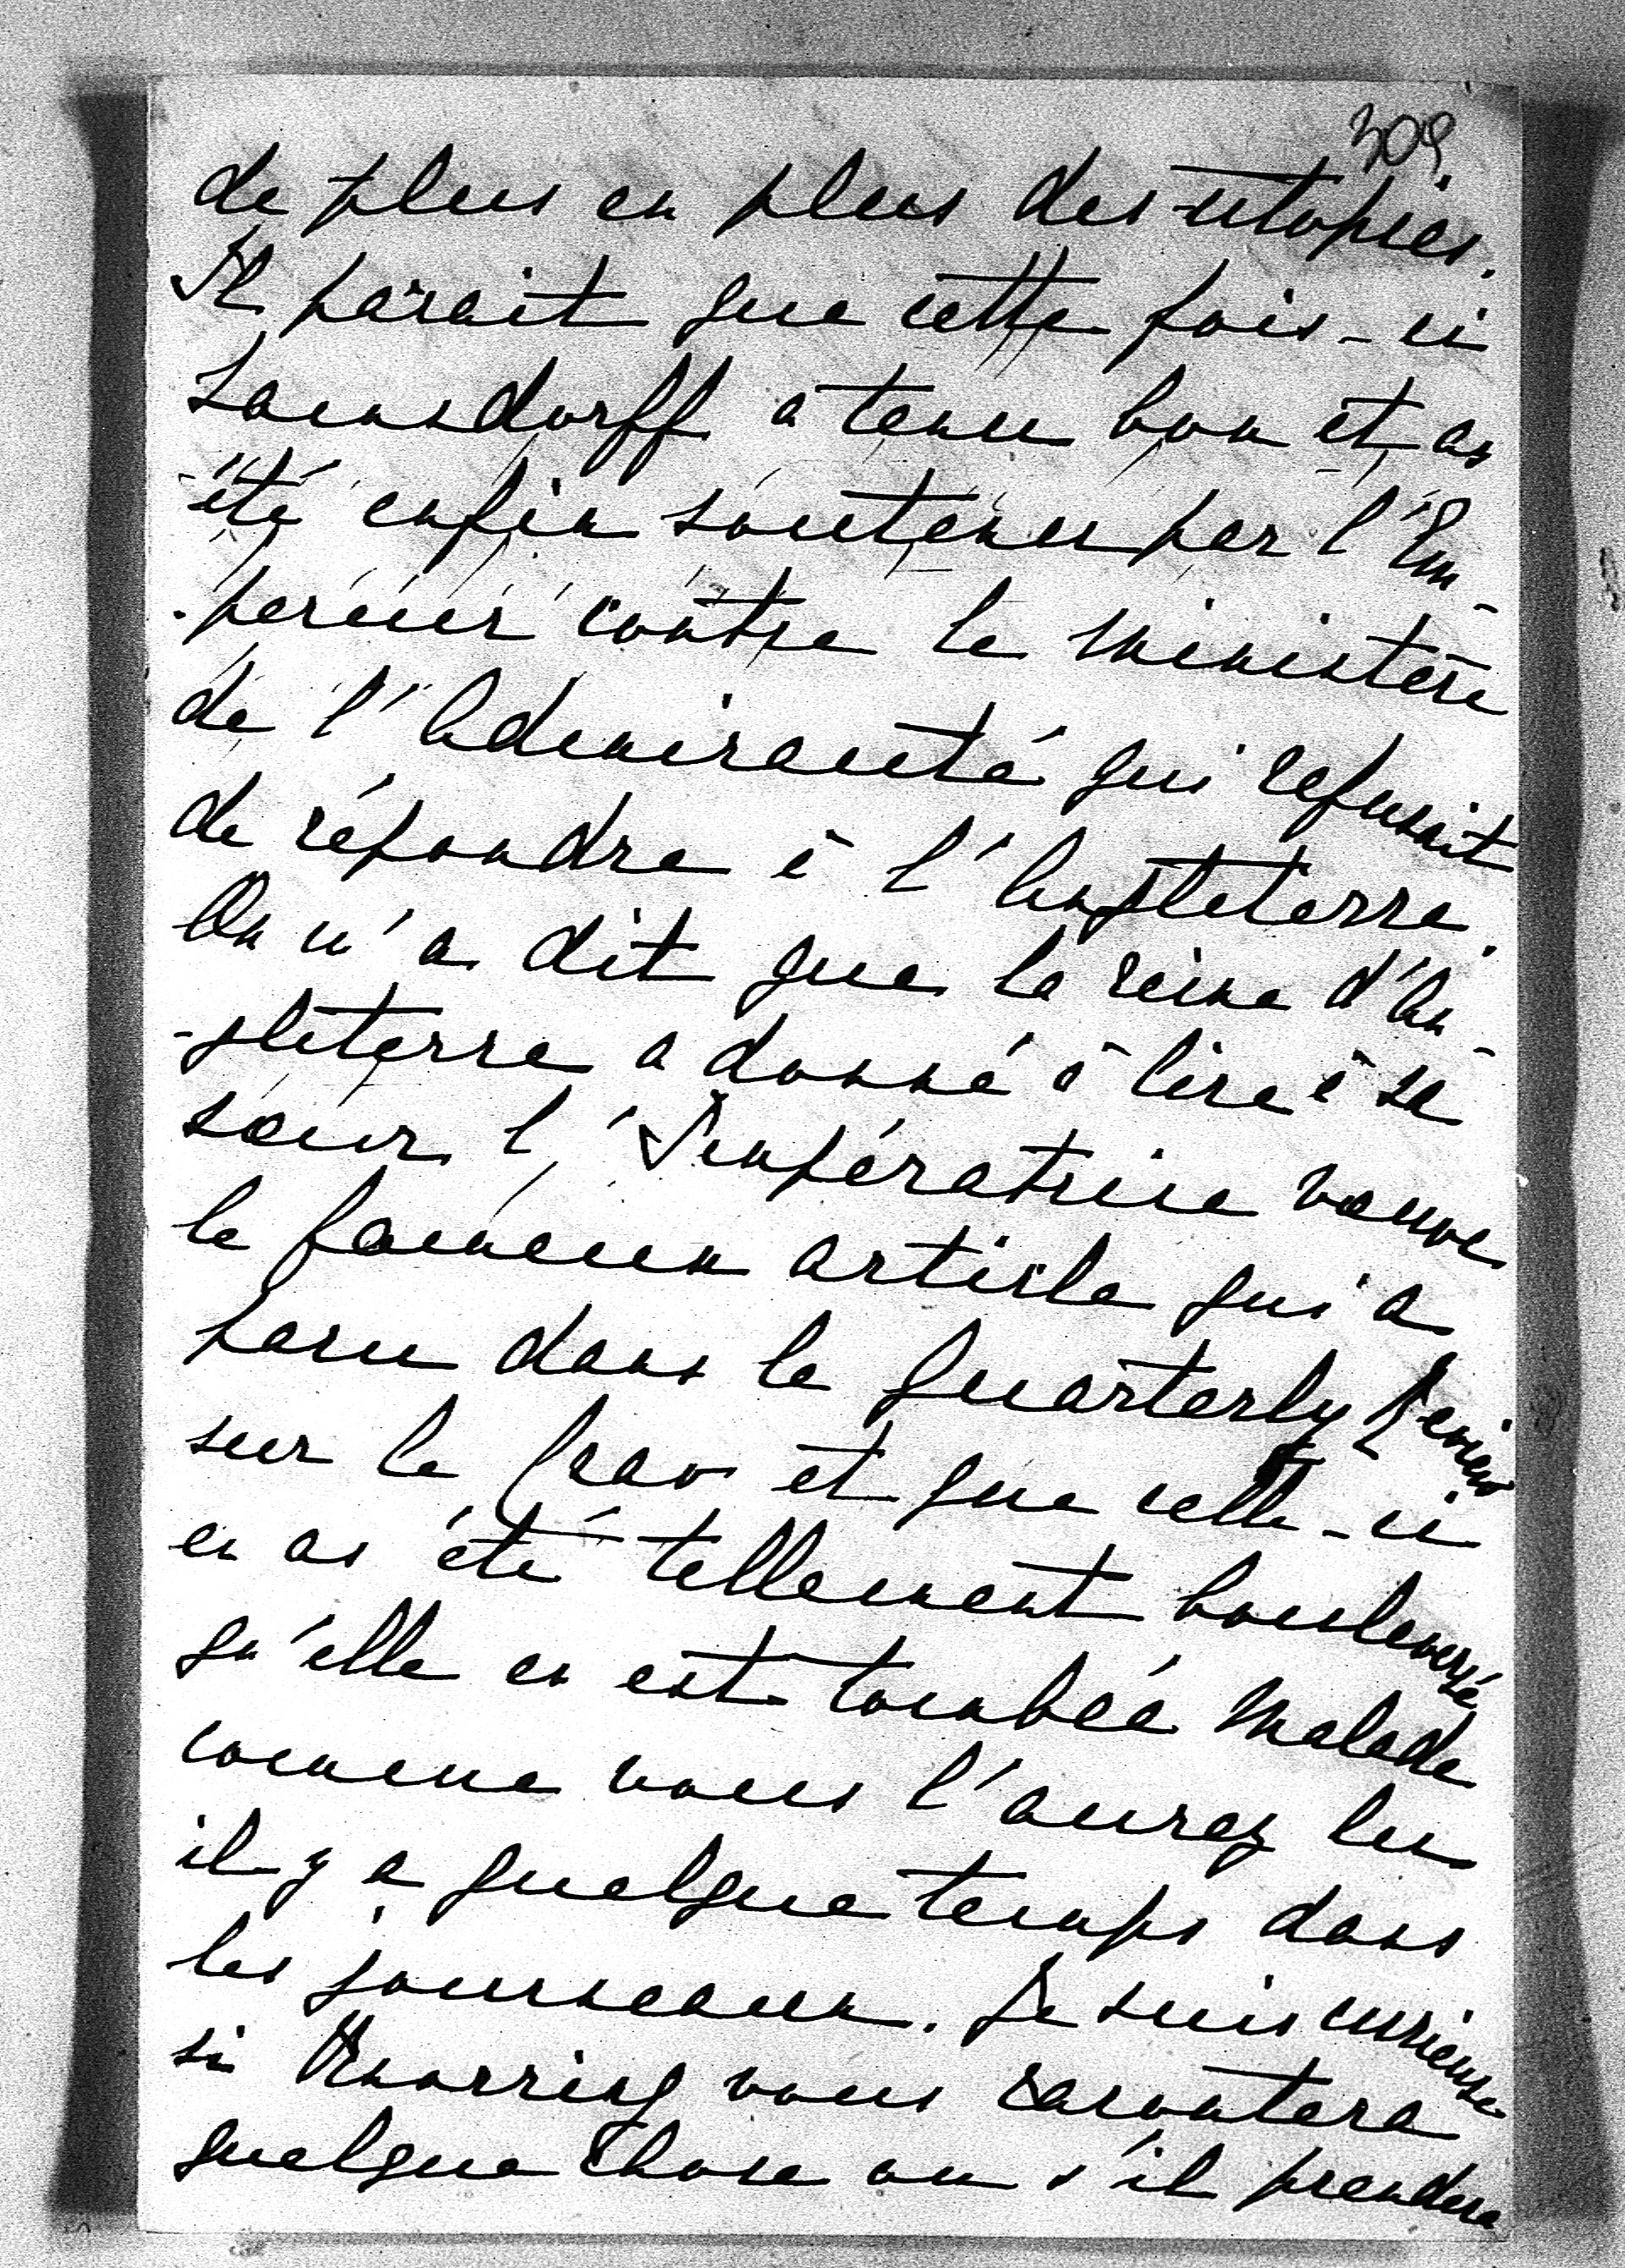 309
de plus en plus des utopies.
Il parait que cette fois-ci
Lamsdorff a tenu bon et as
été enfin soutenu par l'Em-
-pereur contre le ministère
de l'Admirauté qui refusait
de répondre à l'Angleterre.
On m'a dit que la reine d'An-
-gleterre a donné à lire à sa
soeur l'Impératrice veuve
le fameux article qui a
paru dans le Quarterly Review
sur le Czar et que celle-ci
en as été tellement bouleversé
qu'elle en est tombée malade
comme vous l'aurez lu
il y a quelque temps dans
les journeaux. Je suis curieuse
si Knorring vous racontera
quelque chose ou s'il prendera